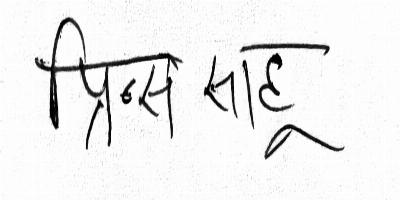 प्रिन्स साहू